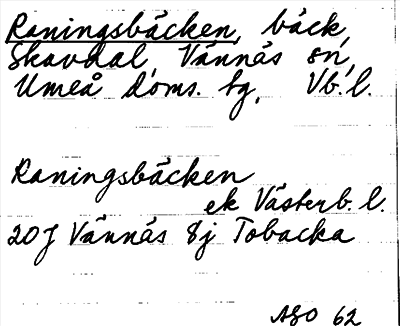 Raningsbäcken, bäck,
Skavdal, Vännäs sn,
Umeå doms. tg, Vb. l.
Raningsbäcken
ek Västerb. l.
20J Vännäs 8j Tobacka
ASO 62